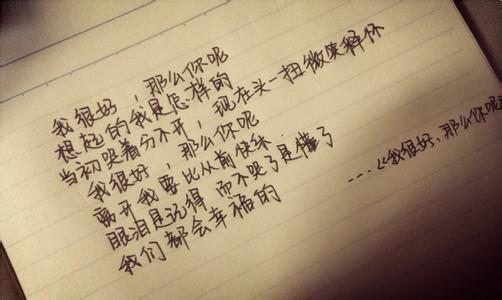 我很好，那么你呢
想起的我是怎样的
当初哭着分不开，现在头一扭微笑释怀
我很好，那么你呢
离开我要比从前快乐
眼泪是记得 而不哭了是懂了
我们都会幸福的
……《我很好、那么你呢